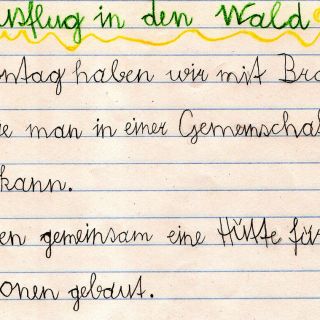 usflug in den Wald
ntag haben wir mit Bra
e man in einer Gemeinscha
kann.
en gemeinsam eine Hütte für
onen gebaut.